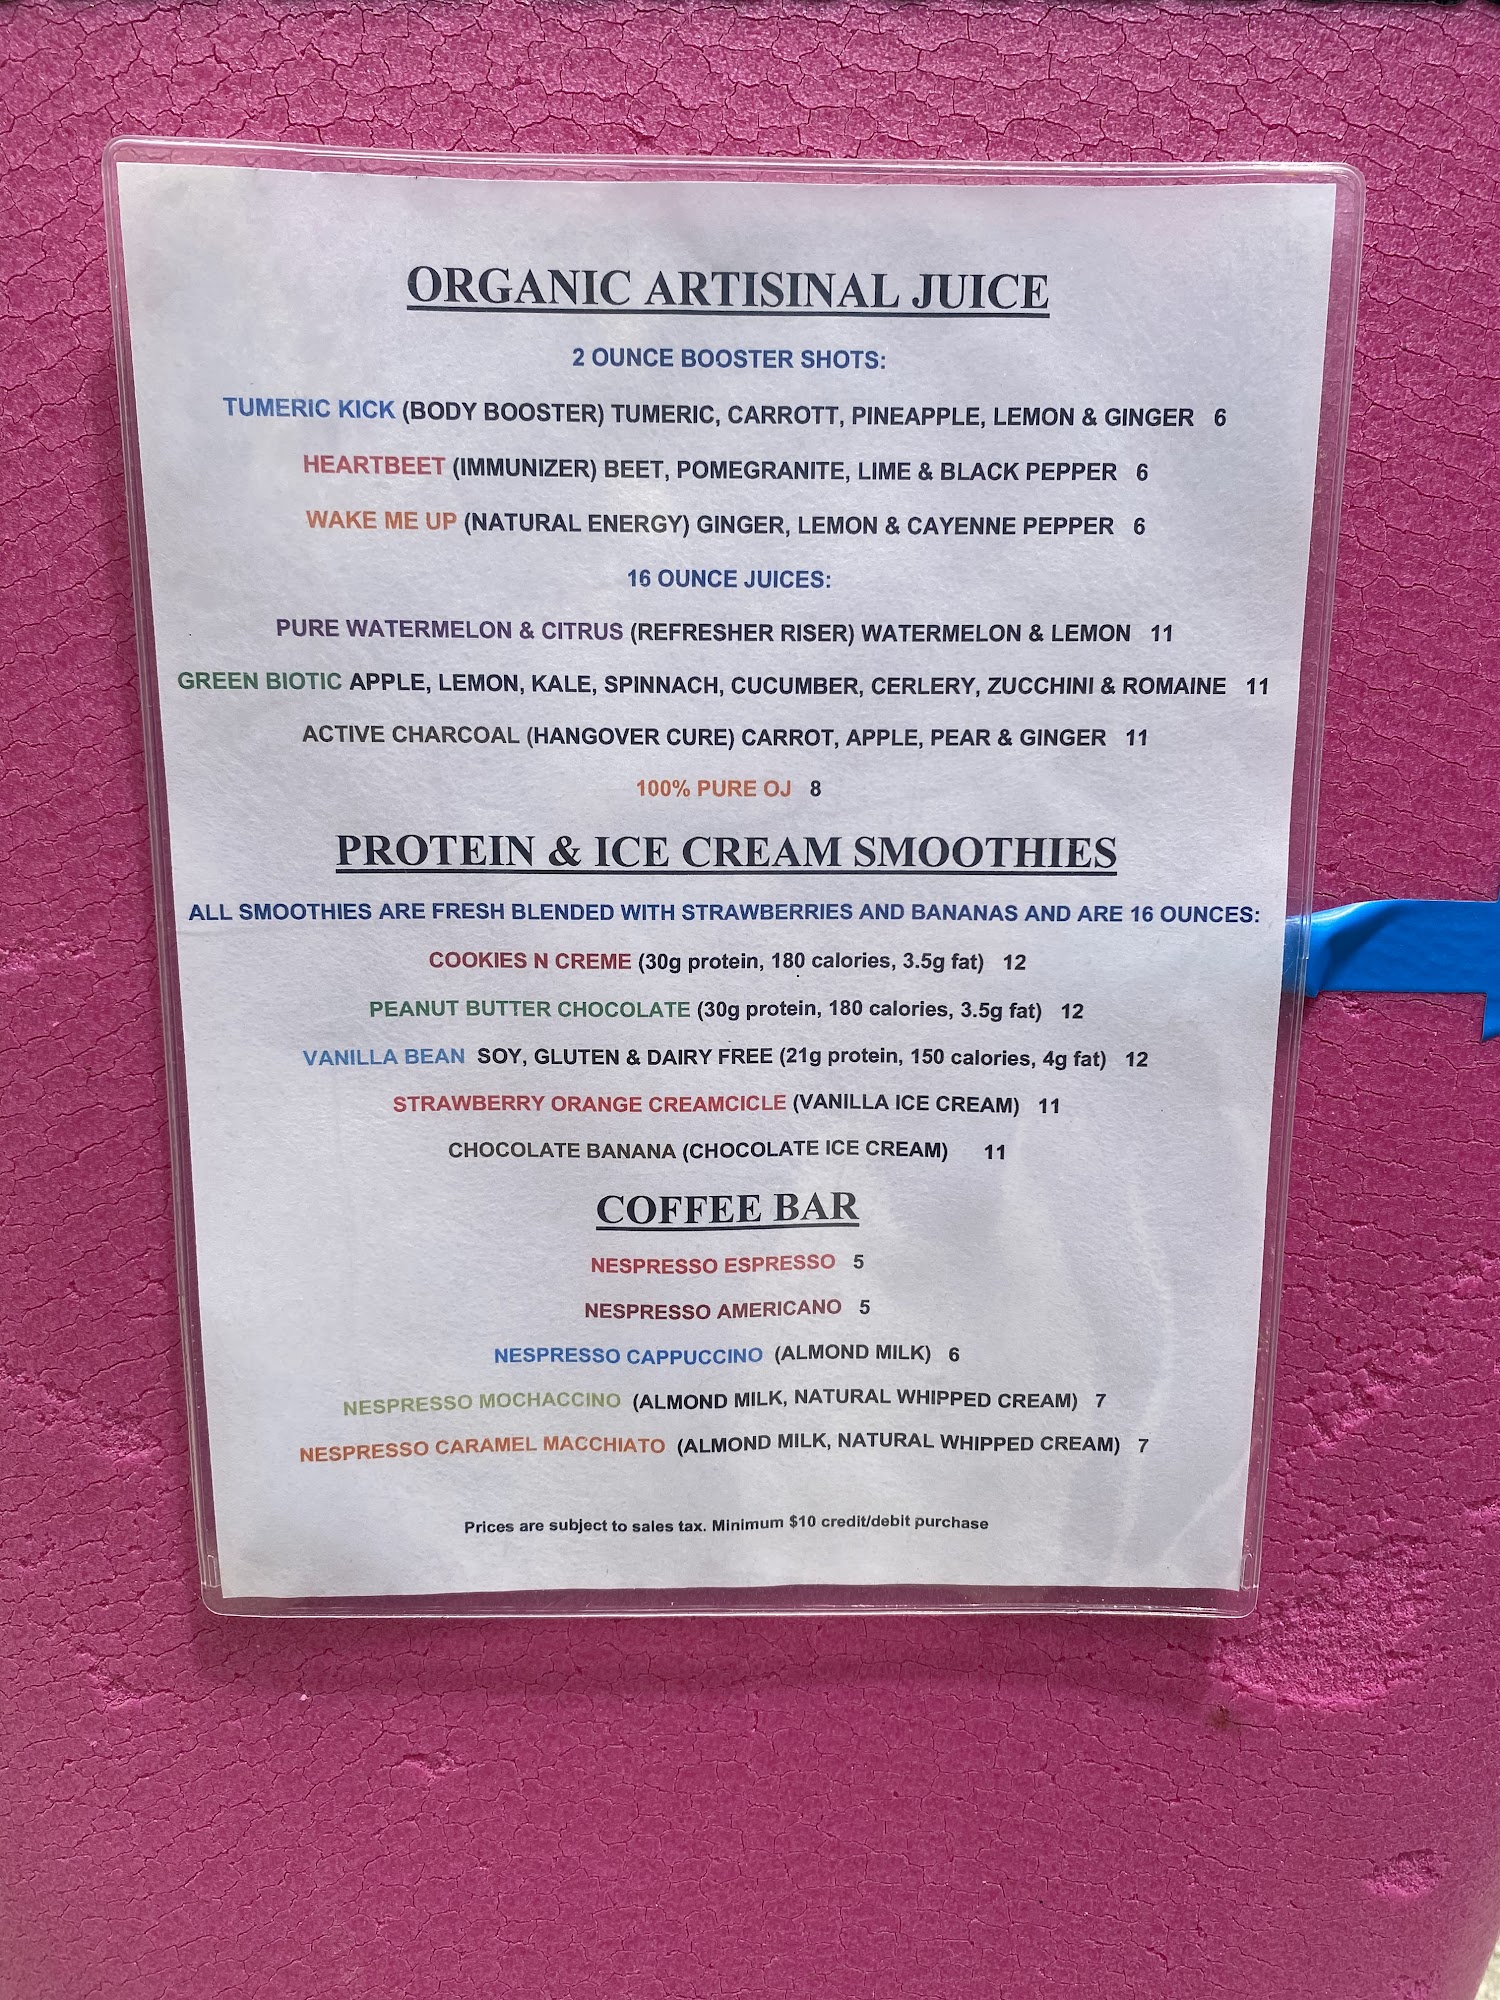 ORGANIC ARTISINAL JUICE
2 OUNCE BOOSTER SHOTS:
TUMERIC KICK (BODY BOOSTER) TUMERIC, CARROTT, PINEAPPLE, LEMON & GINGER 6
HEARTBEET (IMMUNIZER) BEET, POMEGRANITE, LIME & BLACK PEPPER 6
WAKE ME UP (NATURAL ENERGY) GINGER, LEMON & CAYENNE PEPPER 6
16 OUNCE JUICES:
PURE WATERMELON & CITRUS (REFRESHER RISER) WATERMELON & LEMON 11
GREEN BIOTIC APPLE, LEMON, KALE, SPINNACH, CUCUMBER, CERLERY, ZUCCHINI & ROMAINE 11
ACTIVE CHARCOAL (HANGOVER CURE) CARROT, APPLE, PEAR & GINGER 11
100% PURE OJ 8
PROTEIN & ICE CREAM SMOOTHIES
ALL SMOOTHIES ARE FRESH BLENDED WITH STRAWBERRIES AND BANANAS AND ARE 16 OUNCES:
COOKIES N CREME (30g protein, 180 calories, 3.5g fat) 12
PEANUT BUTTER CHOCOLATE (30g protein, 180 calories, 3.5g fat) 12
VANILLA BEAN SOY, GLUTEN & DAIRY FREE (21g protein, 150 calories, 4g fat) 12
STRAWBERRY ORANGE CREAMCICLE (VANILLA ICE CREAM) 11
CHOCOLATE BANANA (CHOCOLATE ICE CREAM) 11
COFFEE BAR
NESPRESSO ESPRESSO 5
NESPRESSO AMERICANO 5
NESPRESSO CAPPUCCINO (ALMOND MILK) 6
NESPRESSO MOCHACCINO (ALMOND MILK, NATURAL WHIPPED CREAM) 7
NESPRESSO CARAMEL MACCHIATO (ALMOND MILK, NATURAL WHIPPED CREAM) 7
Prices are subject to sales tax. Minimum $10 credit/debit purchase